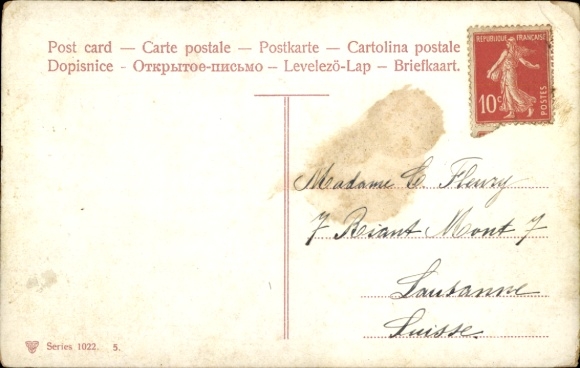 Post card — Carte postale — Postkarte — Cartolina postale
Dopisnice - Открытое-письмо – Levelezö-Lap – Briefkaart.
REPUBLIQUE FRANÇAISE
10c
POSTES
Madame C Fleury
7 Riant Mont 7
Lausanne
Suisse.
Series 1022. 5.